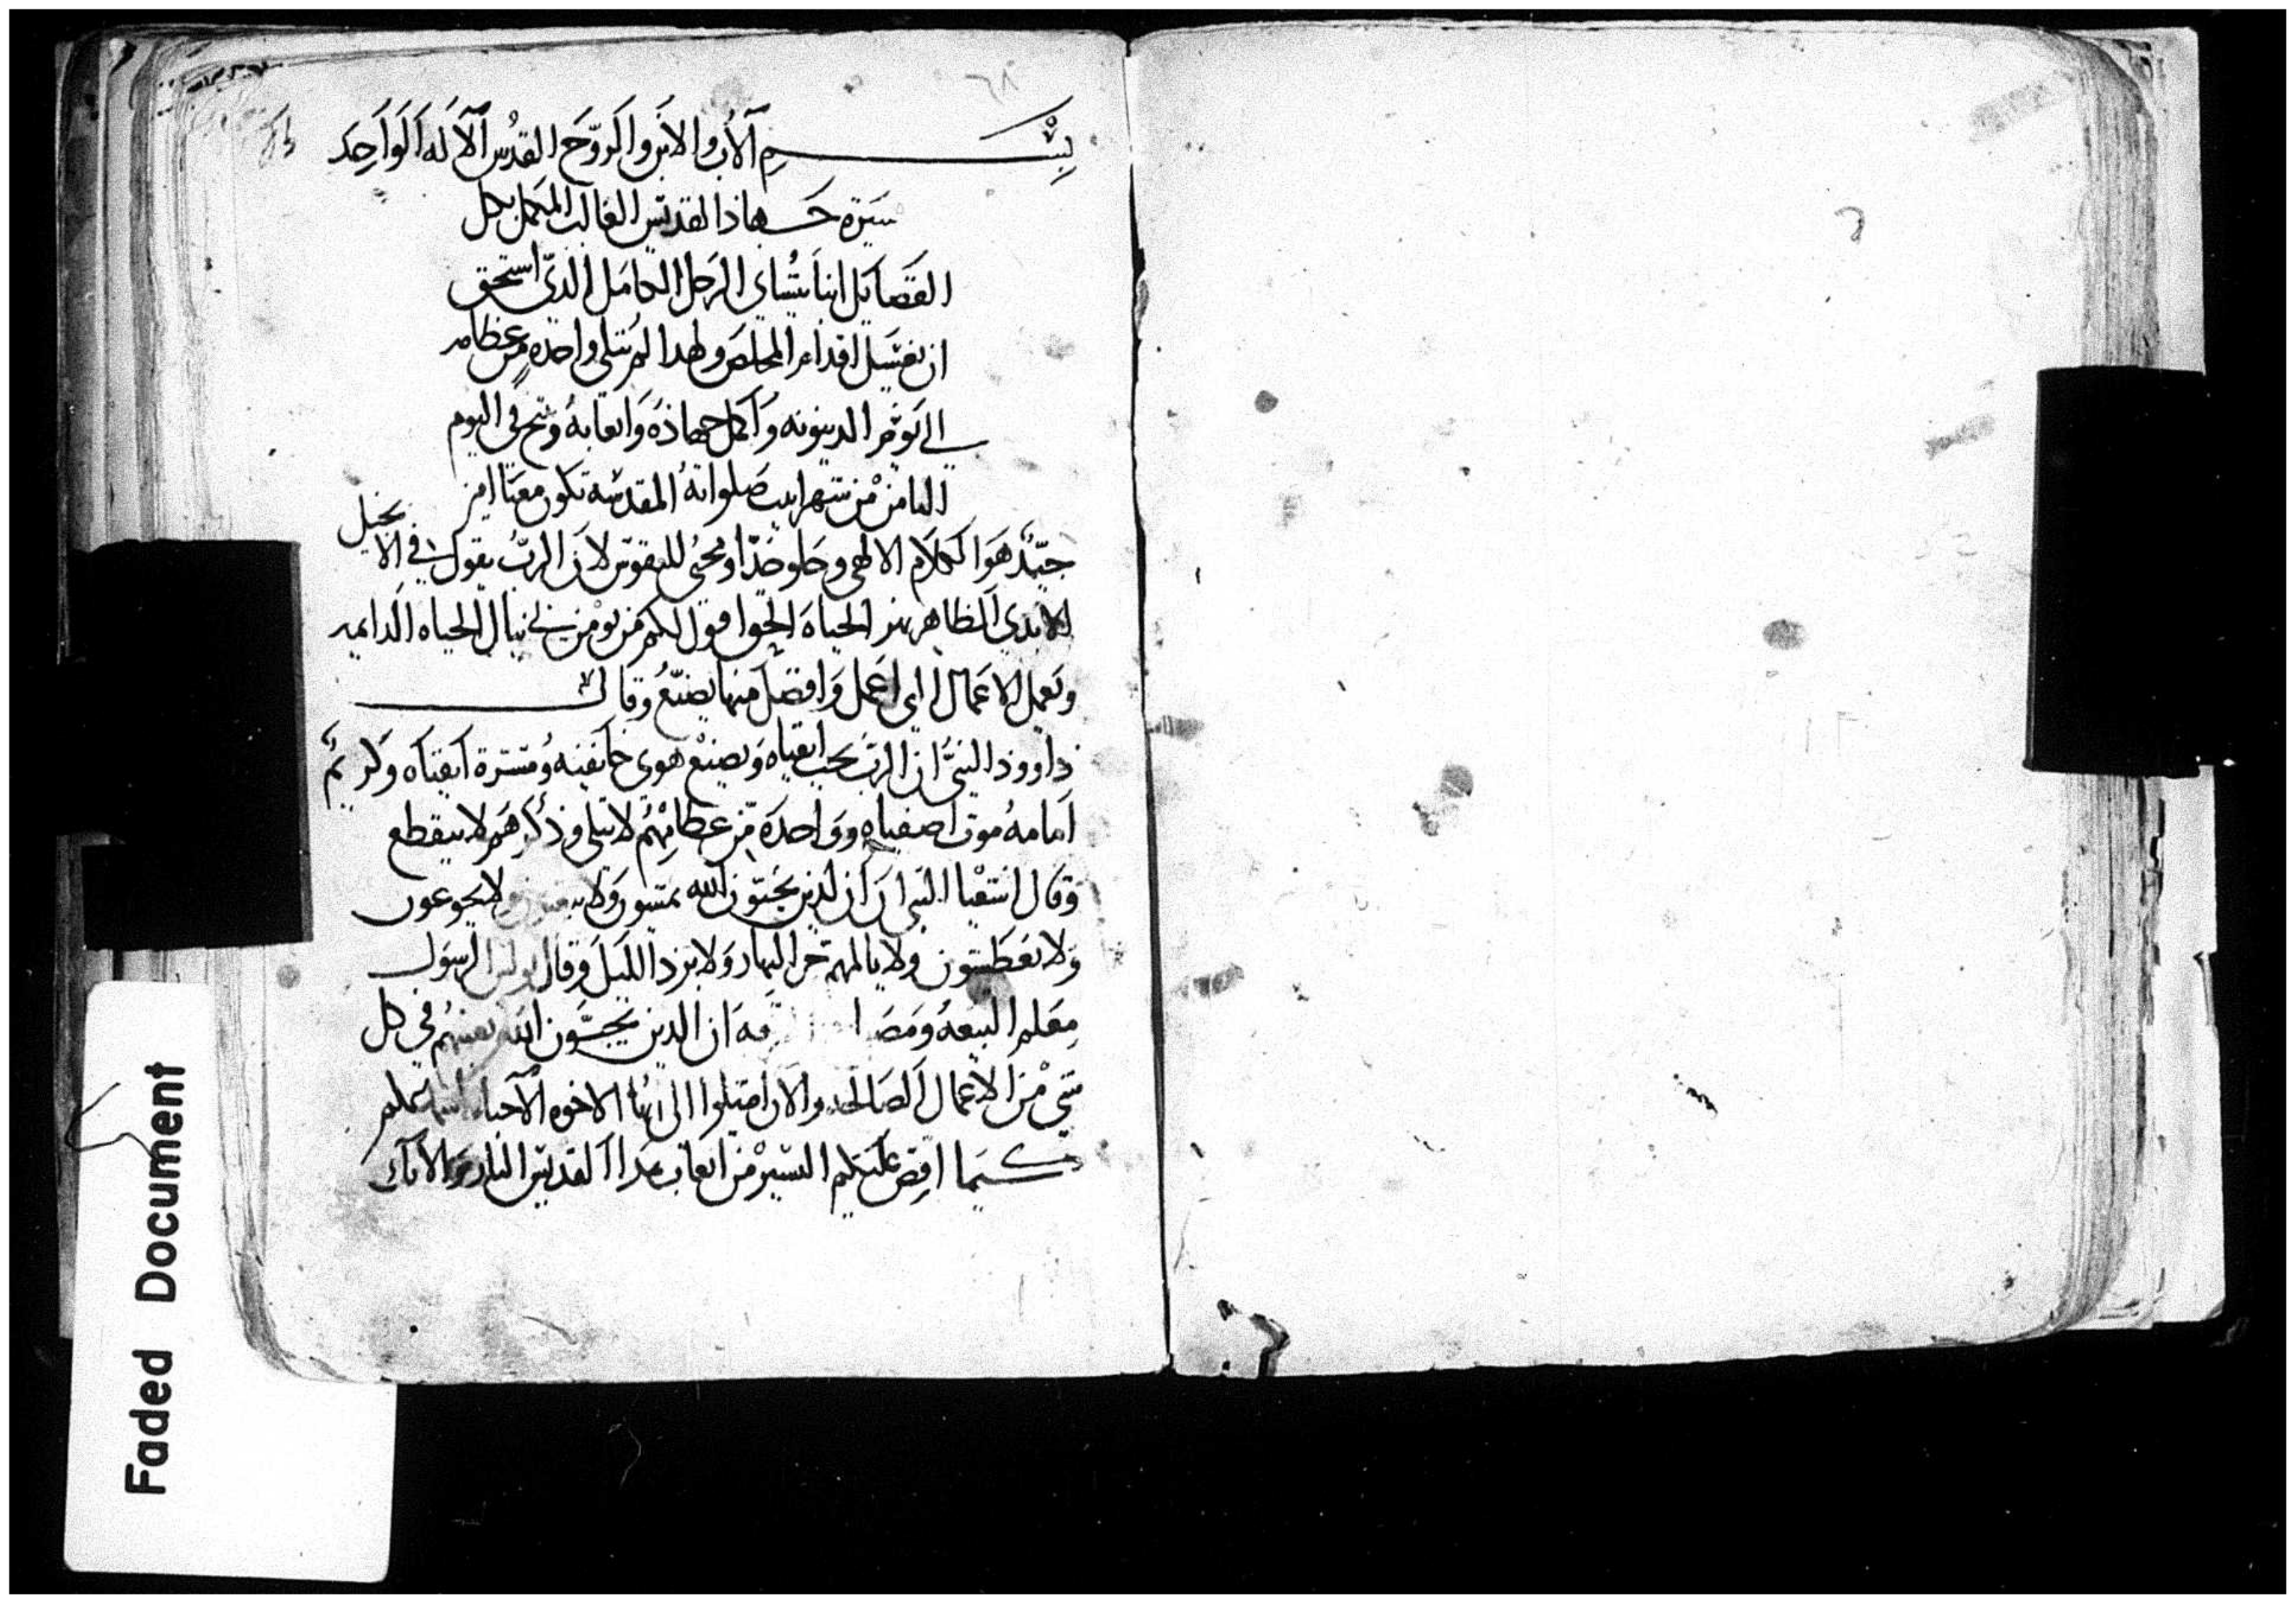 ٦٨
بِسْــــــمِ ٱلاَب والاِبَن والَروّحَ القدُس ٱلاَلَه اَلوَاحِد
سَيرة جَهاذ القديس الغالب المكمل بكل
الفضَايَل انبا بَشاي الرَجل الكامَل الذيّ استحق
ان يغسَل اقدام المخلصَ ولهدا لمَ تبلي واحده من عظامه
الي يَوم الدينونه وَاكمل جهاذهُ وَاتعابهُ وتنيح في اليوم
التامن مْن شهر ابيب صَلواتهُ المقدسَه تكون معنَا امين
جيّدٌ هَوَا اَلكلاَم الالهي وحَلو جذّا ومحييْ للنفوسَ لان الربُ يقول في الانجيل
الابدي الظاهر ينبوع الحياهَ الحق اقول لكم مَن يومْن بي ينال الحياه الدايمه
وَيَعمل الاعَمال التي اعَمل وَافضَل منها يصنَعُ وقال
ذاووذ النبيُ ان الربَ يحب اتقياه وَيصنعْ هوي خايَفينه وُمسَرة اتقياه وَكريمٌ
اَمامهُ موتَ اصَفياهِ ووَاحدَه مّن عظامْهُم لا تبلي وذكرهَم لا ينقطع
وَقال اشعْيا النبي اَن الذين يحَبّوَن الله يمشون وَلا يتعبون ولا يجوعون
وَلا يعَطشون ولا يالمهم حَر النهار وَلا برد الليَل وَقال بولس الرسَول
مِعَلم البيعهُ ان الدين يحَبّوَن الله يعينهُم في كل
شيْ مْن اَلاعمال اَلصَالحه والان اميلوا الي ايُها الاخوه اَلاحباء
كيَما اقِص عَليَكم اليسَيرْ من اتعاب هَدا اَلقديس البار وَالاب
Faded Document